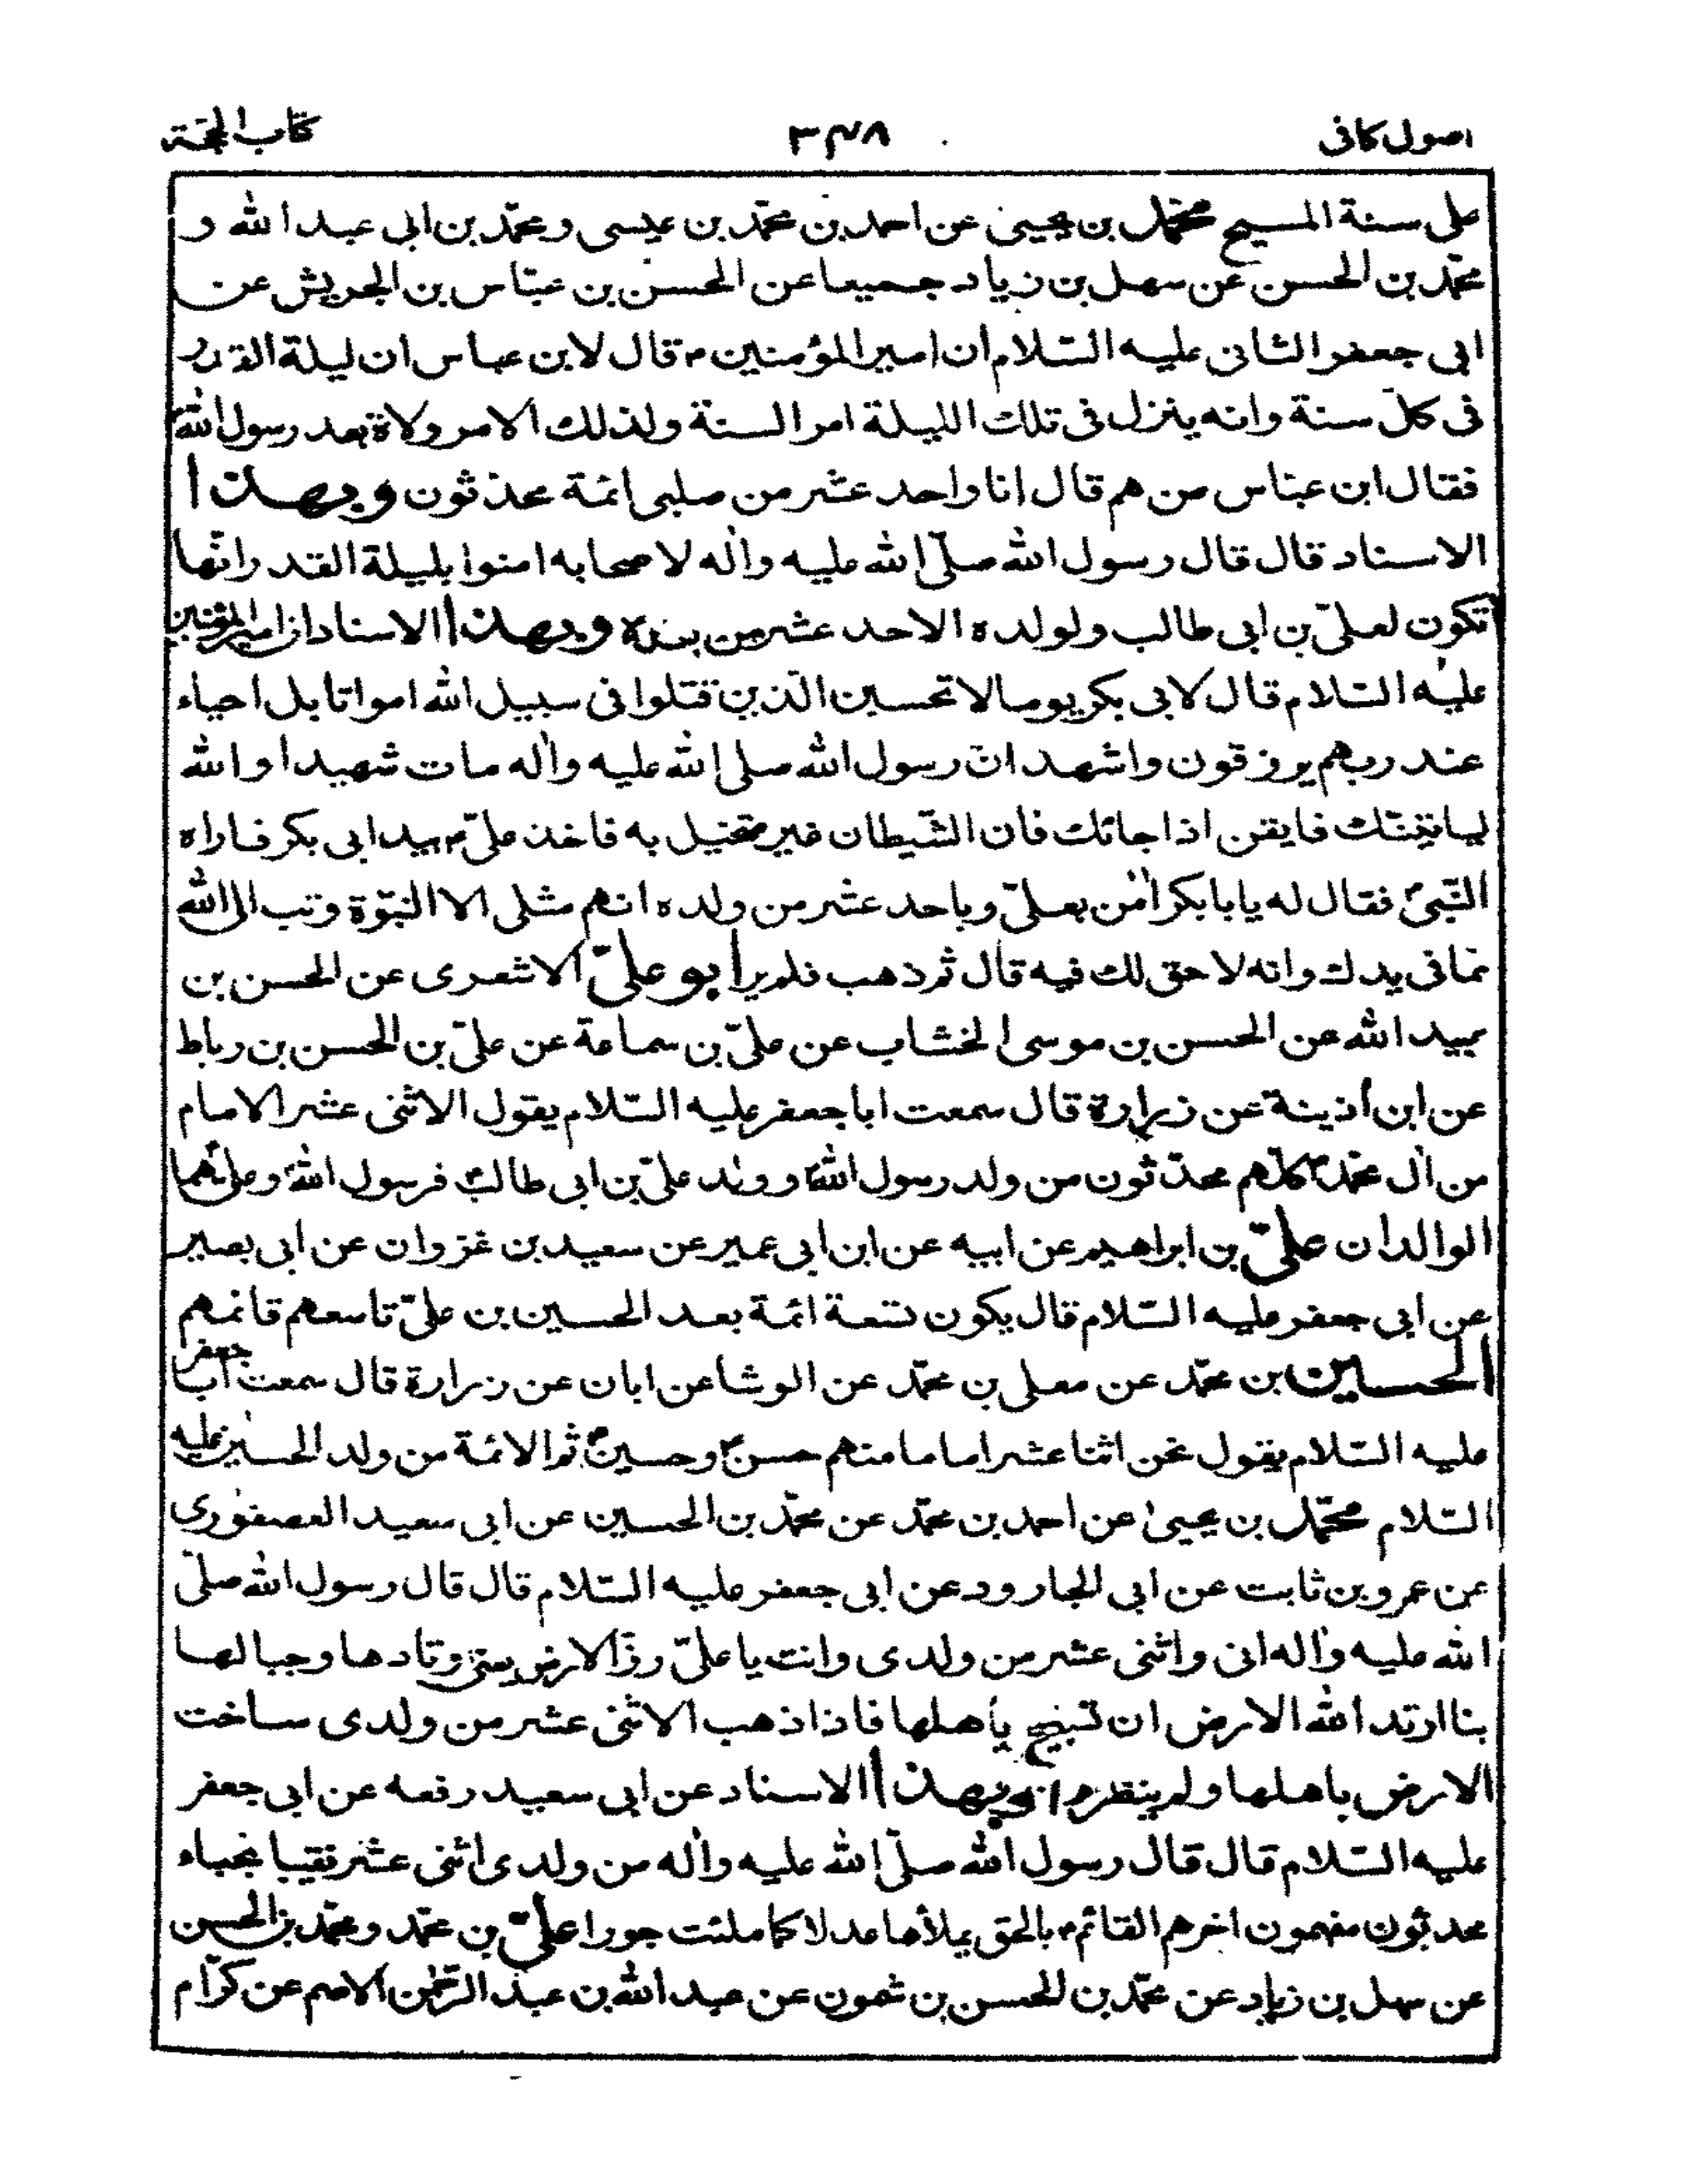 اصول كافى ٣٤٨ كتاب الحجة
على سنة المسيح محمد بن يحيى عن احمد بن محمد بن عيسى ومحمد بن ابى عبد الله و
محمد بن الحسن عن سهل بن زياد جميعا عن الحسن بن عباس بن الجريش عن
ابى جعفر الثانى عليه السلام ان امير المؤمنين ع قال لابن عباس ان ليلة القدر
فى كل سنة وانه ينزل فى تلك الليلة امر السنة ولذلك الامر ولاة بعد رسول الله ص
فقال ابن عباس من هم قال انا واحد عشر من صلبى ائمة محدثون وبهذا
الاسناد قال قال رسول الله صلى الله عليه واله لاصحابه امنوا بليلة القدر انها
تكون لعلى بن ابى طالب ولولده الاحد عشر من بعده وبهذا الاسناد ان امير المؤمنين
عليه السلام قال لابى بكر يوما لا تحسبن الذين قتلوا فى سبيل الله امواتا بل احياء
عند ربهم يرزقون واشهد ان رسول الله صلى الله عليه واله مات شهيدا والله
لياتينك فايقن اذا جائك فان الشيطان غير متخيل به فاخذ على ع بيد ابى بكر فاراه
النبى ص فقال له يا با بكر امن بعلى وباحد عشر من ولده انهم مثلى الا النبوة وتب الى الله
مما فى يدك وانه لا حق لك فيه قال ثم ذهب فلم ير ابو على الاشعرى عن الحسن بن
عبيد الله عن الحسن بن موسى الخشاب عن على بن سماعة عن على بن الحسن بن رباط
عن ابن اذينة عن زرارة قال سمعت ابا جعفر عليه السلام يقول الاثنى عشر الامام
من ال محمد كلهم محدثون من ولد رسول الله ص وولد على بن ابى طالب ع فرسول الله ص وعلى ع هما
الوالدان على بن ابراهيم عن ابيه عن ابن ابى عمير عن سعيد بن غزوان عن ابى بصير
عن ابى جعفر عليه السلام قال يكون تسعة ائمة بعد الحسين بن على تاسعهم قائمهم
الحسين بن محمد عن معلى بن محمد عن الوشا عن ابان عن زرارة قال سمعت ابا جعفر
عليه السلام يقول نحن اثنا عشر اماما منهم حسن ع وحسين ع ثم الائمة من ولد الحسين عليه
السلام محمد بن يحيى عن احمد بن محمد عن محمد بن الحسين عن ابى سعيد العصفورى
عن عمرو بن ثابت عن ابى الجارود عن ابى جعفر عليه السلام قال قال رسول الله صلى
الله عليه واله انى واثنى عشر من ولدى وانت يا على رز الارض يعنى وتادها وجبالها
بنا ارتد الله الارض ان تسيخ باهلها فاذا ذهب الاثنى عشر من ولدى ساخت
الارض باهلها ولم ينظروا وبهذا الاسناد عن ابى سعيد رفعه عن ابى جعفر
عليه السلام قال قال رسول الله صلى الله عليه واله من ولدى اثنى عشر نقيبا نجباء
محدثون مفهمون اخرهم القائم ع بالحق يملأها عدلا كما ملئت جورا على بن محمد ومحمد بن الحسن
عن سهل بن زياد عن محمد بن الحسن بن شمون عن عبد الله بن عبد الرحمن الاصم عن كرام